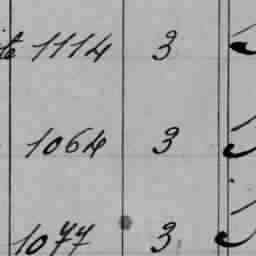 1114 3
1064 3
1077 3